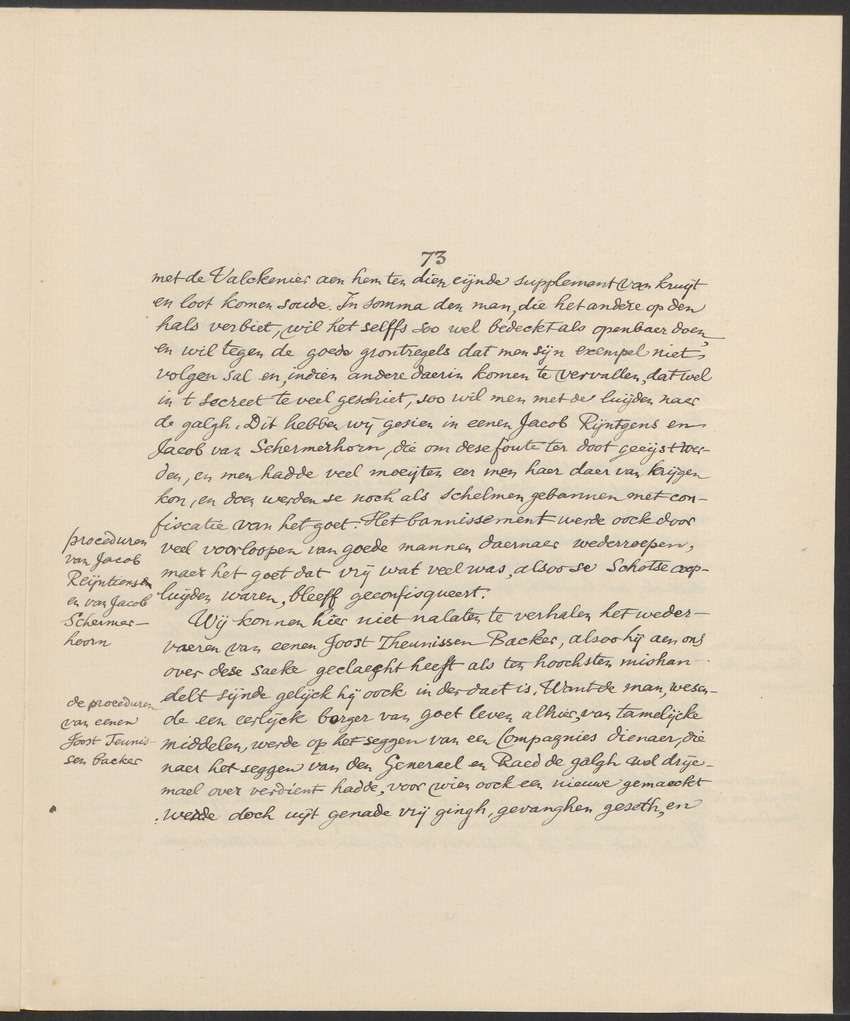 73
met de Valckenier aen hem ten dien eijnde supplement van kruijt
en loot komen soude. In somma den man, die het andere op den
hals verbiet, wil het selffs soo wel bedeckt als openbaer doen,
en wil tegen de goede grontregels dat men sijn exempel niet
volgen sal en, indien andere daerin komen te vervallen, dat wel
in t secreet te veel geschiet, soo wil men met de luijden naer
de galgh. Dit hebben wij gesien in eenen Jacob Rijntgens en
Jacob van Schermerhorn, die om dese foute ter doot geeijst wer-
den, en men hadde veel moeijten eer men haer daer van krijgen
kon, en doen werden se noch als schelmen gebannen met con-
fiscatie van het goet. Het bannissement werde oock door
veel voorloopen van goede mannen daernaer wederroepen,
maer het goet dat vrij wat veel was, alsoo se Schotse coop-
luijden waren, bleeff geconfisqueert.
procedures
van Jacob
Reijntiens
en van Jacob
Schermer-
hoorn
Wij konnen hier niet nalaten te verhalen het weder-
vaeren van eenen Joost Theunissen Backer, alsoo hij aen ons
over dese saeke geclaeght heeft als ten hoochsten mishan
delt sijnde gelijck hij oock in der daet is. Want de man, wesen-
de een eerlijck borger van goet leven alhier, van tamelijcke
middelen, werde op het seggen van een Compagnies dienaer, die
naer het seggen van den Generael en Raed de galgh wel drije-
mael over verdient hadde, voor wien oock een nieuwe gemaeckt
werde doch uijt genade vrij gingh, gevanghen geseth, en
de procedures
van eenen
Joost Teunis-
sen backer